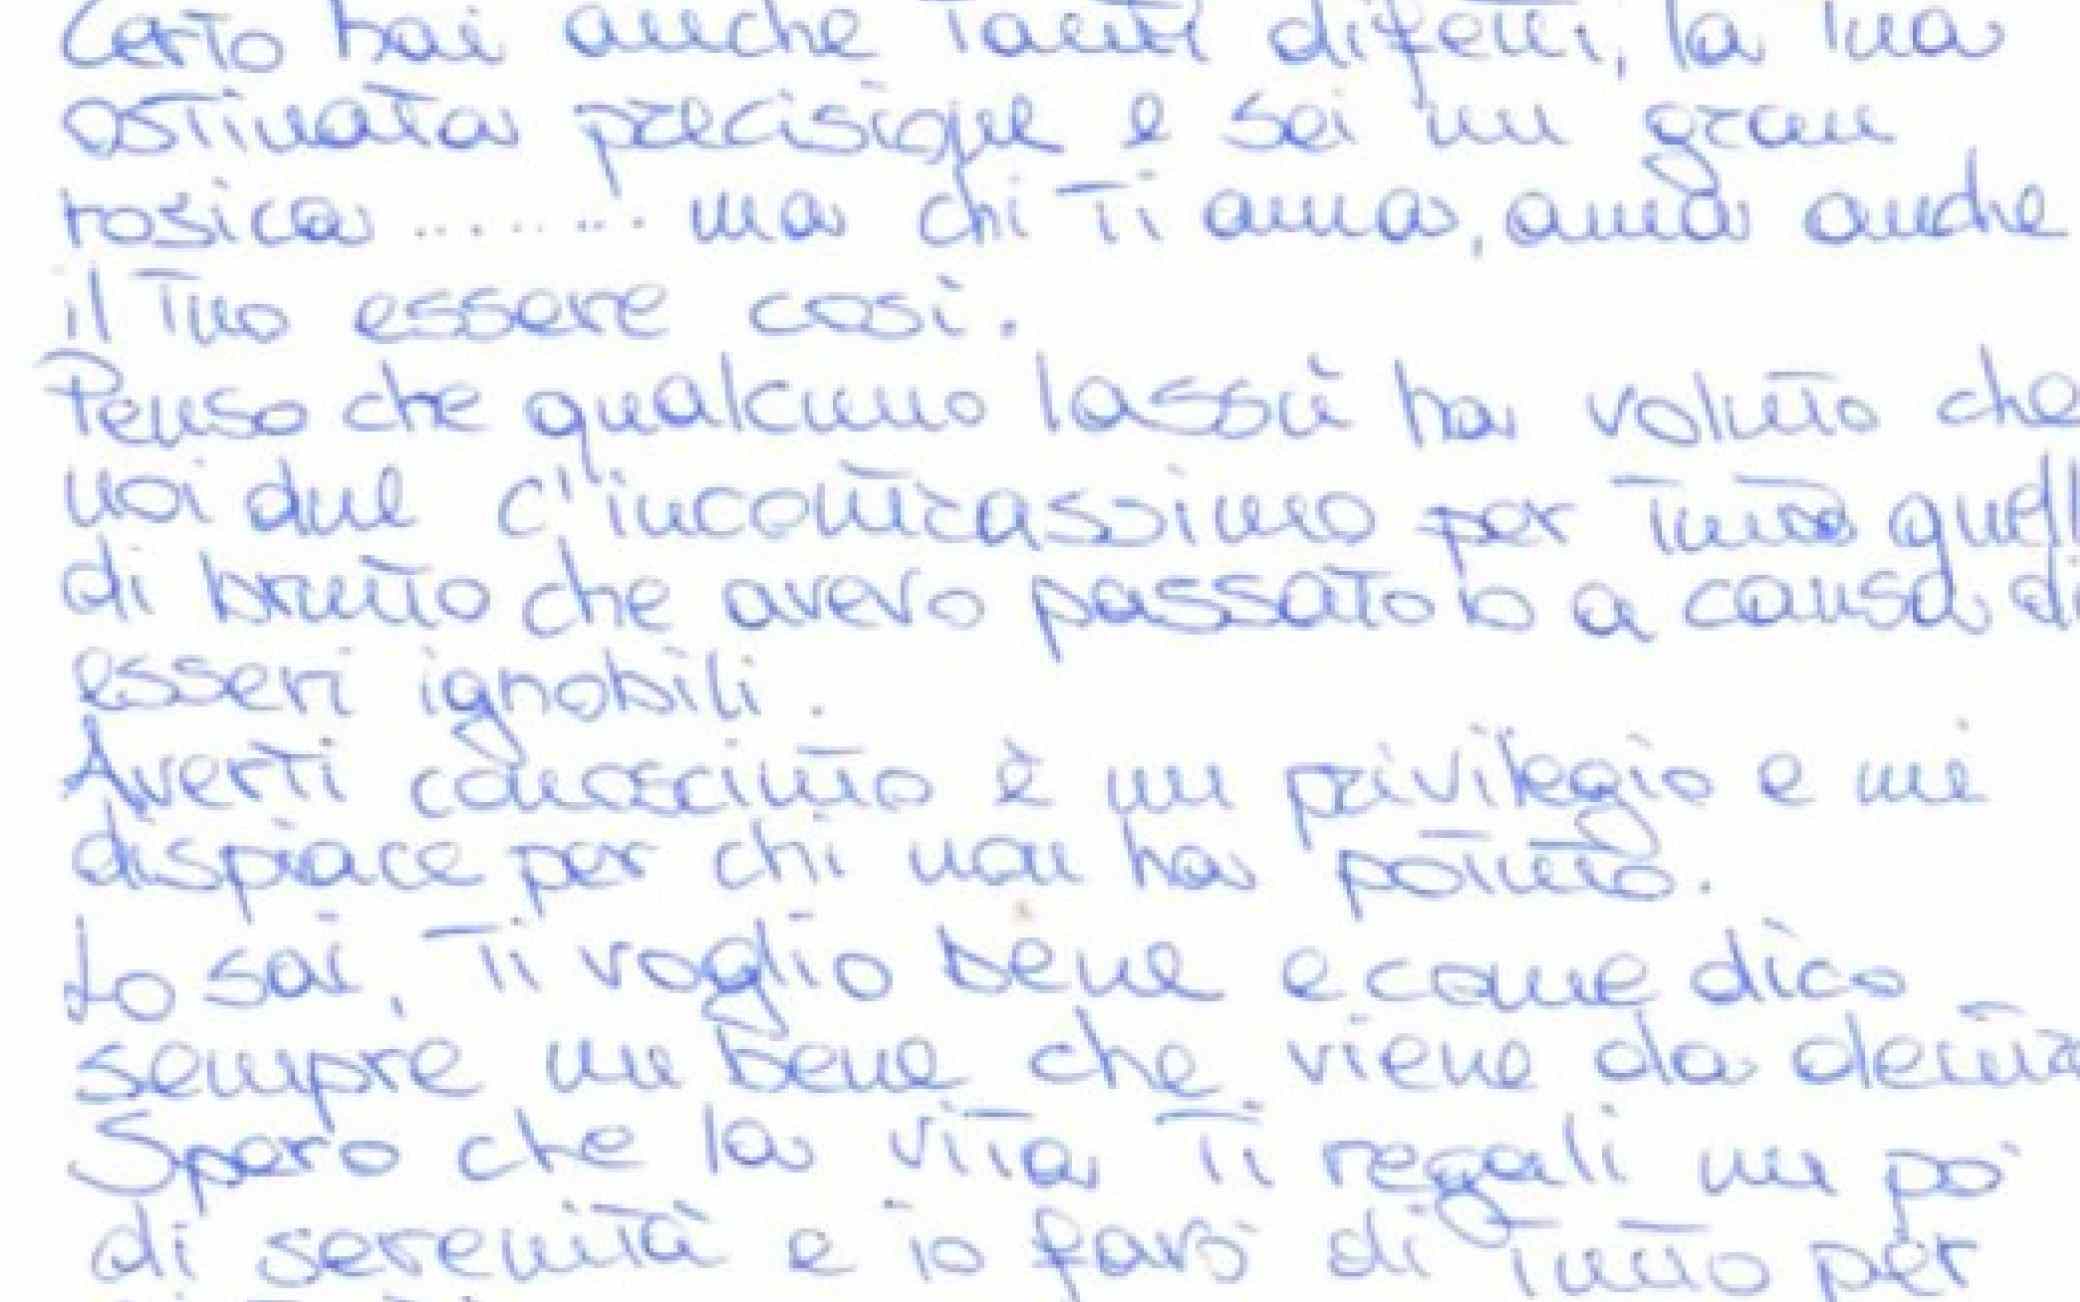 Certo hai anche tanti difetti, la tua
ostinata precisione e sei un gran
rosica ........ ma chi ti ama, ama anche
il tuo essere così.
Penso che qualcuno lassù ha voluto che
noi due c'incontrassimo per tutto quell
di brutto che avevo passato io a causa di
esseri ignobili.
Averti conosciuto è un privilegio e mi
dispiace per chi non ha potuto.
Lo sai, ti voglio bene e come dico
sempre un bene che viene da dentro
Spero che la vita ti regali un po'
di serenità e io farò di tutto per